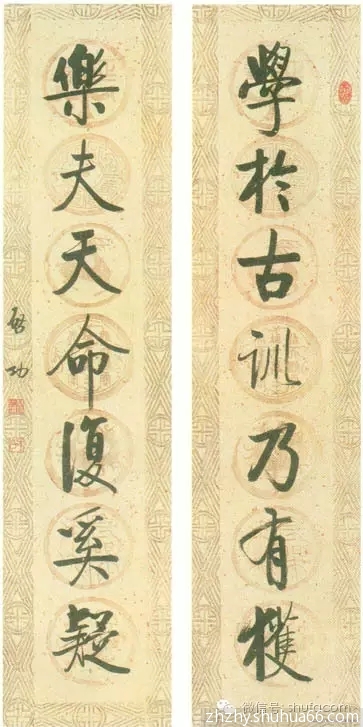 學於古訓乃有獲
樂夫天命復奚疑
啓功
微信号:
zhzhy.shuhua66.com